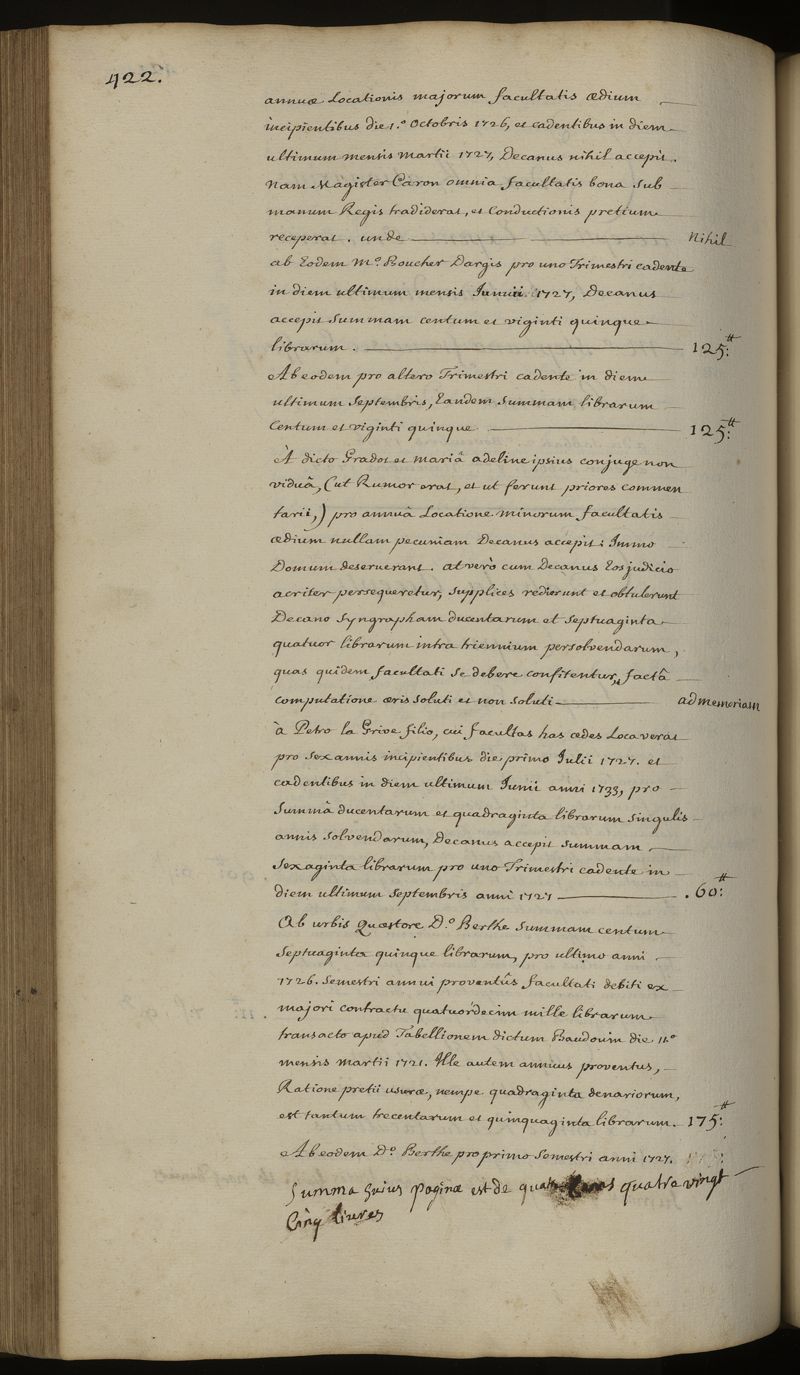 422.
annuæ Locationis majorum facultatis ædium
incipientibus die 1.ª Octobris 1726, et cadentibus in diem
ultimum mensis martii 1727, Decanus nihil accepit.
Nam Magister Caron omnia facultatis bona sub
manum Regis tradiderat, et Conductionis pretium
receperat. unde Nihil
ab Eodem M.º Boucher Dargis pro uno Trimestri cadente
in diem ultimum mensis Junii 1727, Decanus
accepit Summam centum et viginti quinque
librarum. 125:tt
Ab eodem pro altero Trimestri cadente in diem
ultimum Septembris, Eandem Summam librarum
Centum et viginti quinque 125:tt
À dicto Gradot et mariâ adeline ipsius conjuge non
viduâ, (ut Rumor erat, et ut ferunt priores commen
tarii,) pro annuâ Locatione minorum facultatis
ædium nullam pecuniam Decanus accepit; Immo
Domum deseruerant. at verò cum Decanus Eos judicio
acriter persequeretur, supplices redierunt et obtulerunt
Decano Syngrapham ducentarum et Septuaginta
quatuor librarum intra triennium persolvendarum,
quas quidem facultati se debere confitentur, factâ
computatione æris soluti et non soluti ad memoriam
à Petro la Grive filio, cui facultas has ædes Locaverat
pro sex annis incipientibus die primo Julii 1727. et
cadentibus in diem ultimum Junii anni 1733, pro
Summâ ducentarum et quadraginta librarum singulis
annis solvendarum, Decanus accepit Summam
Sexaginta librarum pro uno Trimestri cadente in
diem ultimum Septembris anni 1727 . 60:tt
Ab urbis Quæstore D.º Berthe Summam centum
Septuaginta quinque librarum, pro ultimo anni
1726. Semestri annui proventûs facultati debiti ex
majori contractu quatuordecim mille librarum
transacto apud Tabellionem dictum Baudouin die 11.ª
mensis martii 1721. Ille autem annuus proventus,
Ratione pretii usuræ, nempe quadraginta denariorum,
est tantum trecentarum et quinquaginta librarum. 175:tt
Ab eodem D.º Berthe pro primo Semestri anni 1727.
Summa huius paginæ est de quatre vingt
Cinq livres